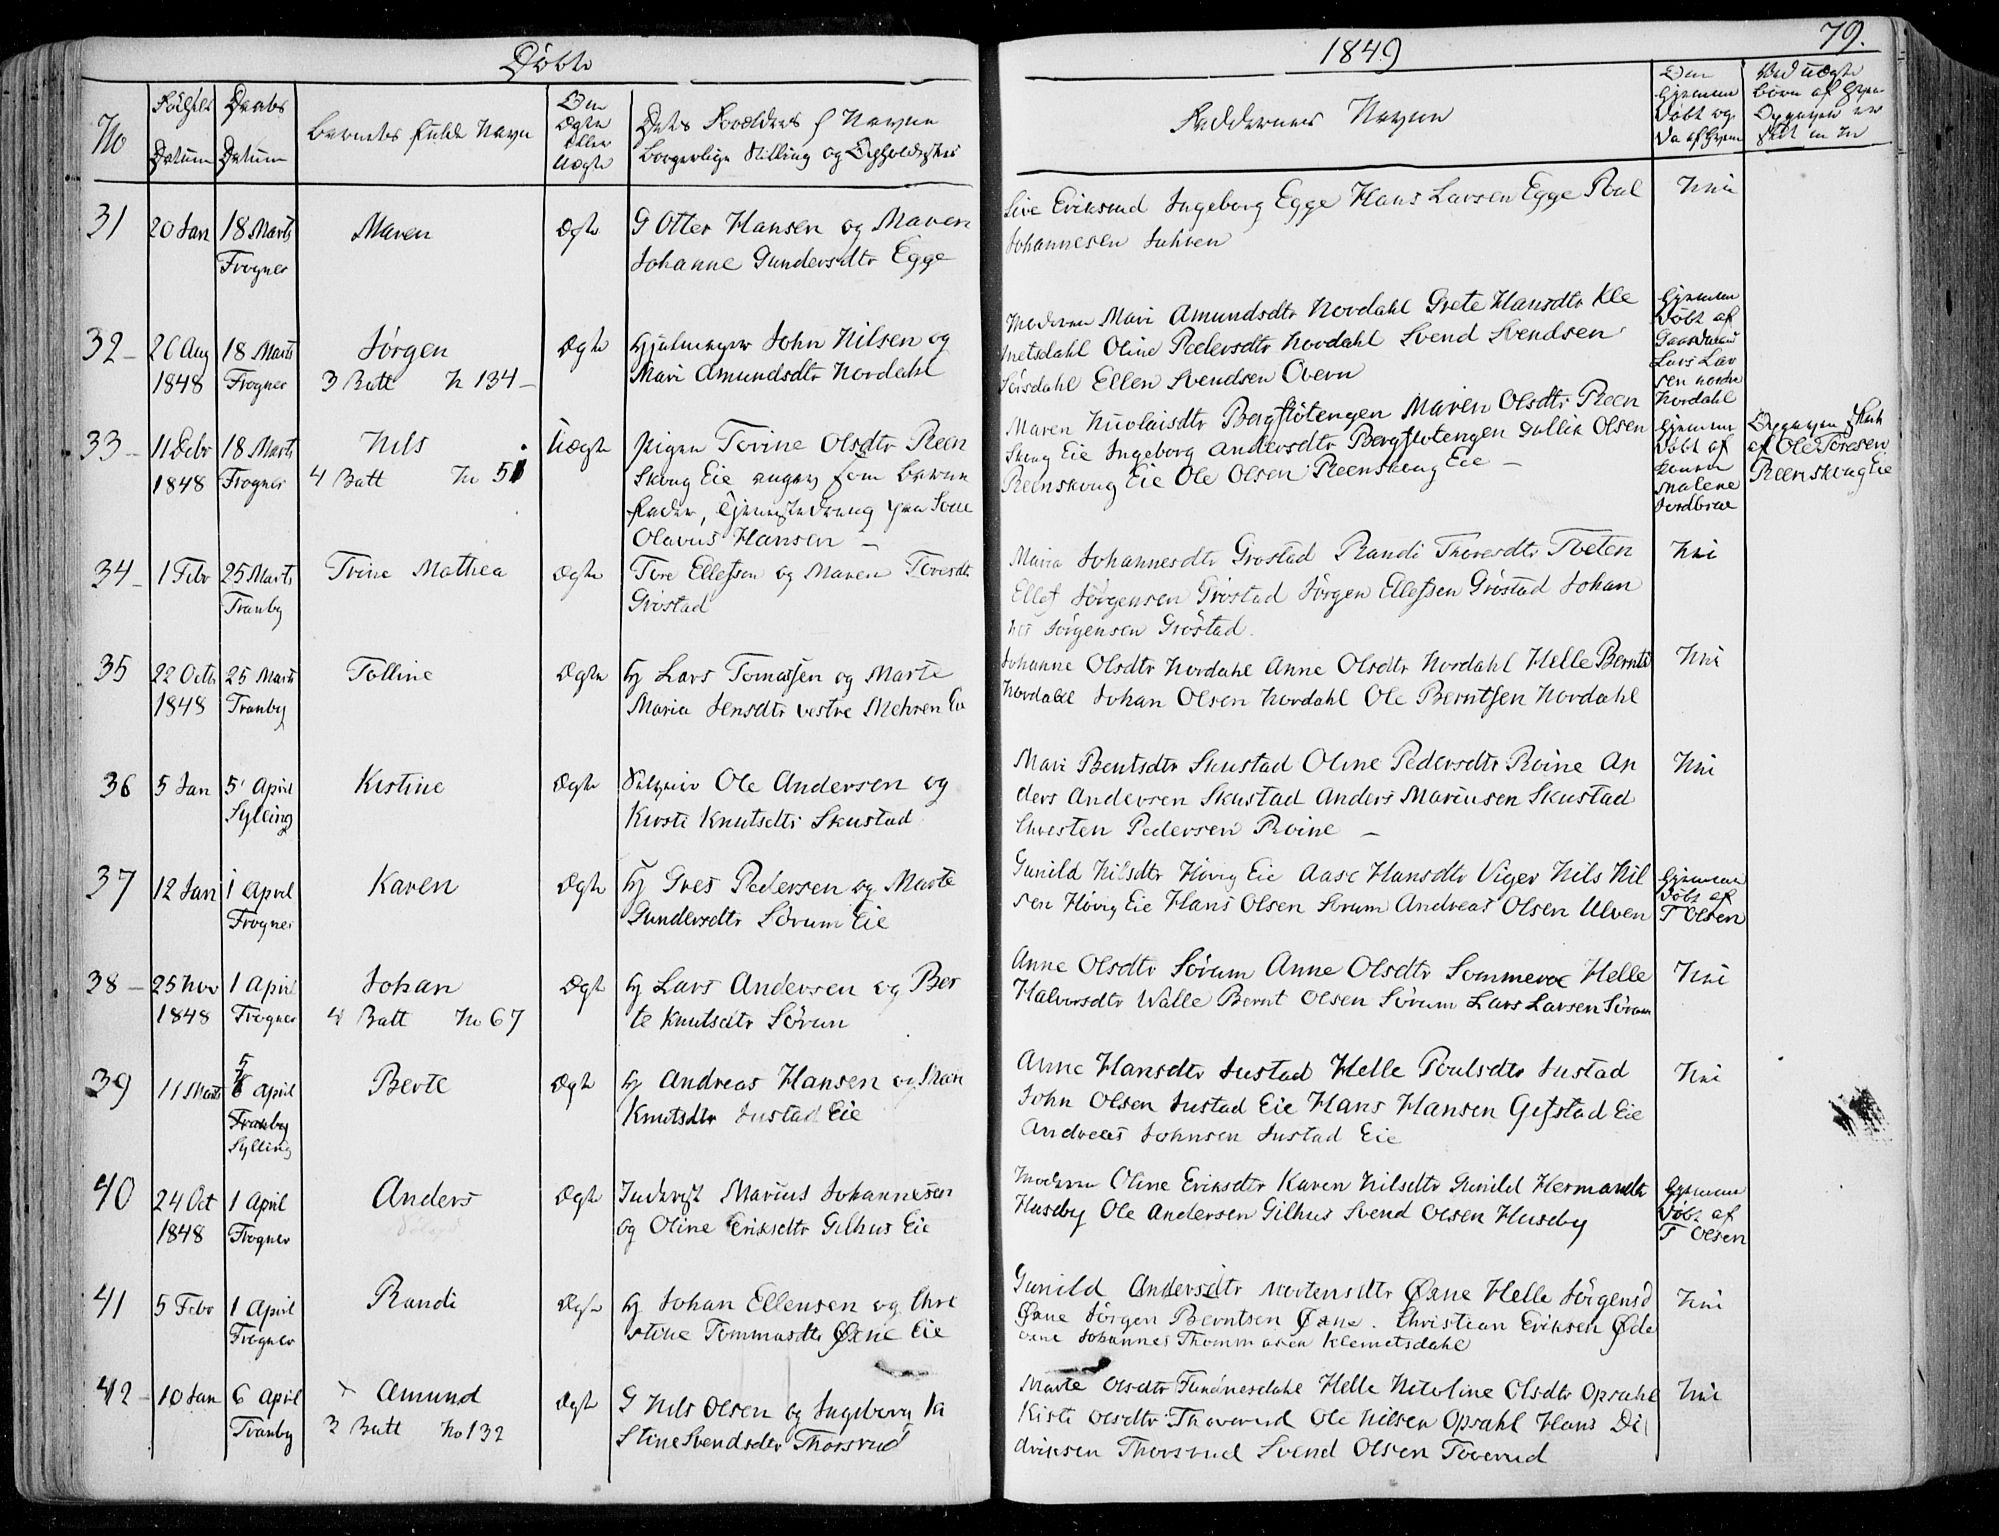 Døbte
1849
79.
No
Fødsels Datum
Daabs Datum
Barnets fulde Navn
Om Ægte eller Uægte
Dets Forældres Navne
borgerlige Stilling og Opholdssted
Faddernes Navne
Om Hjemmedøbt og da af hvem
31
20 Jan
18 Marts
Frogner
Maren
Ægte
G Otter Hansen og Maren
Johanne Gundersdtr Egge
Sive Eriksrud Ingeborg Egge Hans Larsen Egge Poul
Johannesen
Nei
32
26 Aug
1848
18 Marts
Frogner
Jørgen
3 Batt N 134
Ægte
John Nilsen og
Mari Amundsdtr Nordahl
Moderen Mari Amundsdtr Nordahl Grete Hansdtr Kle
metsdahl Oline Pedersdtr Nordahl Svend Svendsen
Sørsdahl Ellen Svendsen Overn
Hjemme
døbt af
Gaardmand
Lars Lar
sen nordre
Nordahl
33
11 Debr
1848
18 Marts
Frogner
Nils
4 Batt No 51
Uægte
Pigen Torine Olsdtr Reen
Skoug Eie angav som Barne
fader, Tjenestedreng
Olavus Hansen
Maren Nicolaisdtr Bergflotengen Maren Olsdtr Reen
Skoug Eie Ingeborg Andersdtr Bergflotengen Olsen
Reenskoug Eie Ole Olsen Reenskoug Eie
Hjemme
døbt af
Malene
af Ole Toresen
Reenskoug Eie
34
1 Febr
25 Marts
Tranby
Trine Mathea
Ægte
Tore Ellefsen og Maren Toresdtr
Grøstad
Maria Johannesdtr Grøstad Randi Thoresdtr Tveten
Ellef Jørgensen Grøstad Jørgen Ellefsen Grøstad Johan
nes Jørgensen Grøstad.
Nei
35
22 Octb
1848
25 Marts
Tranby
Tolline
Ægte
Hj Lars Tomassen og Marte
Maria Jensdtr vestre Mehren Eie
Johanne Olsdtr Nordahl Anne Olsdtr Nordahl Helle Berntd
Nordahl Johan Olsen Nordahl Ole Berntsen Nordahl
Nei
36
5 Jan
5 April
Sylling
Kistine
Ægte
Ole Andersen og
Kirsti Knutsdtr Skustad
Mari Bentsdtr Skustad Oline Pedersdtr Roine An
ders Andersen Skustad Anders Mariusen Skustad
Christen Pedersen Roine
Nei
37
12 Jan
1 April
Frogner
Karen
Ægte
Hj Gres Pedersen og Marte
Gundersdtr Sørum Eie
Gunild Nilsdtr Høvig Eie Aase Hansdtr Viger Nils Nil
sen Høvig Eie Hans Olsen Sørum Andreas Olsen Ulven
Hjemme
døbt af
T Olsen
38
25 Nov
1848
1 April
Frogner
Johan
4 Batt No 67
Ægte
Hj Lars Andersen og Ber
te Knutsdtr Sørum
Anne Olsdtr Sørum Anne Olsdtr Sommeroe Helle
Halvorsdtr Walle Bernt Olsen Sørum Lars Larsen Sørum
Nei
39
11 Marts
5
April
Tranby
Sylling
Berte
Ægte
Hj Andreas Hansen og Mari
Knutsdtr Justad Eie
Anne Hansdtr Justad Helle Poulsdtr Justad
John Olsen Justad Eie Hans Hansen Gifstad Eie
Andreas Johnsen Justad Eie
Nei
40
24 Oct
1848
1 April
Frogner
Anders
Ægte
Inderst Marius Johannesen
og Oline Eriksdtr Gilhus Eie
Moderen Oline Eriksdtr Karen Nilsdtr Gunild Hermandtr
Huseby Ole Andersen Gilhus Svend Olsen Huseby
Hjemme
døbt af
T Olsen
41
5 Febr
1 April
Frogner
Randi
Ægte
Hj Johan Ellensen og Chri
stine Tommasdtr Øxne Eie
Gunild Andersdtr Mortensdtr Øxne Helle Jørgensd
Øxne Jørgen Berntsen Øxne. Christian Eriksen Øde
Johannes Thommasen Klemetsdahl
Nei
42
10 Jan
6 April
Tranby
× Amund
3 Batt No 132
Ægte
G Nils Olsen og Ingeborg Ki
Stine Svendsdtr Thorsrud
Marte Olsdtr Tundnesdahl Helle Nicoline Olsdtr Opsahl
Kisti Olsdtr Thoverud Ole Nilsen Opsahl Hans Di
driksen Thorsrud Svend Olsen Toverud
Nei